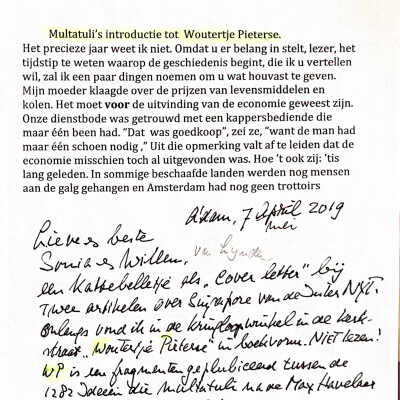 Multatuli's introductie tot Woutertje Pieterse.
Het precieze jaar weet ik niet. Omdat u er belang in stelt, lezer, het
tijdstip te weten waarop de geschiedenis begint, die ik u vertellen
wil, zal ik een paar dingen noemen om u wat houvast te geven.
Mijn moeder klaagde over de prijzen van levensmiddelen en
kolen. Het moet voor de uitvinding van de economie geweest zijn.
Onze dienstbode was getrouwd met een kappersbediende die
maar één been had. "Dat was goedkoop", zei ze, "want de man had
maar één schoen nodig ," Uit die opmerking valt af te leiden dat de
economie misschien toch al uitgevonden was. Hoe 't ook zij: 'tis
lang geleden. In sommige beschaafde landen werden nog mensen
aan de galg gehangen en Amsterdam had nog geen trottoirs
A'dam, 7 April 2019
mei
Lieve beste
Sonia es Willem, van
een Kattebelletje als "cover letter" bij
Twee artikelen over Singapore van de Inter NYT.
Onlangs vond ik in de kringloopwinkel in de Kerk-
straat "Woutertje Pieterse" in boekvorm. NIET lezen!
WP is een fragmenten gepubliceerd tussen de
1282 Ideeën die multatuli na de Max Havelaar